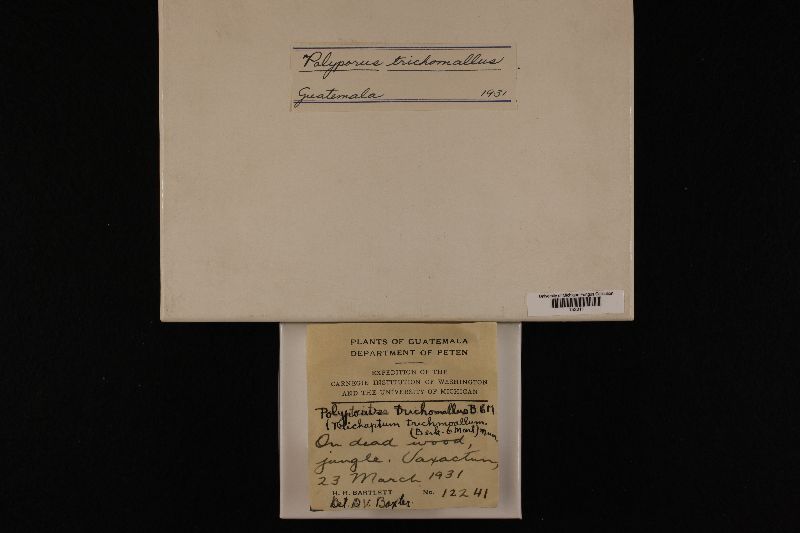 Polyporus trichomallus
Guatemala 1931
University of Michigan Fungus Collection
PLANTS OF GUATEMALA
DEPARTMENT OF PETEN
EXPEDITION OF THE
CARNEGIE INSTITUTION OF WASHINGTON
AND THE UNIVERSITY OF MICHIGAN
Polyporus trichomallus B & M
(Berk. & Mont) Murr.
On dead wood,
jungle. Uaxactun,
23 March 1931
H. H. BARTLETT No. 12241
Det. D. V. Baxter